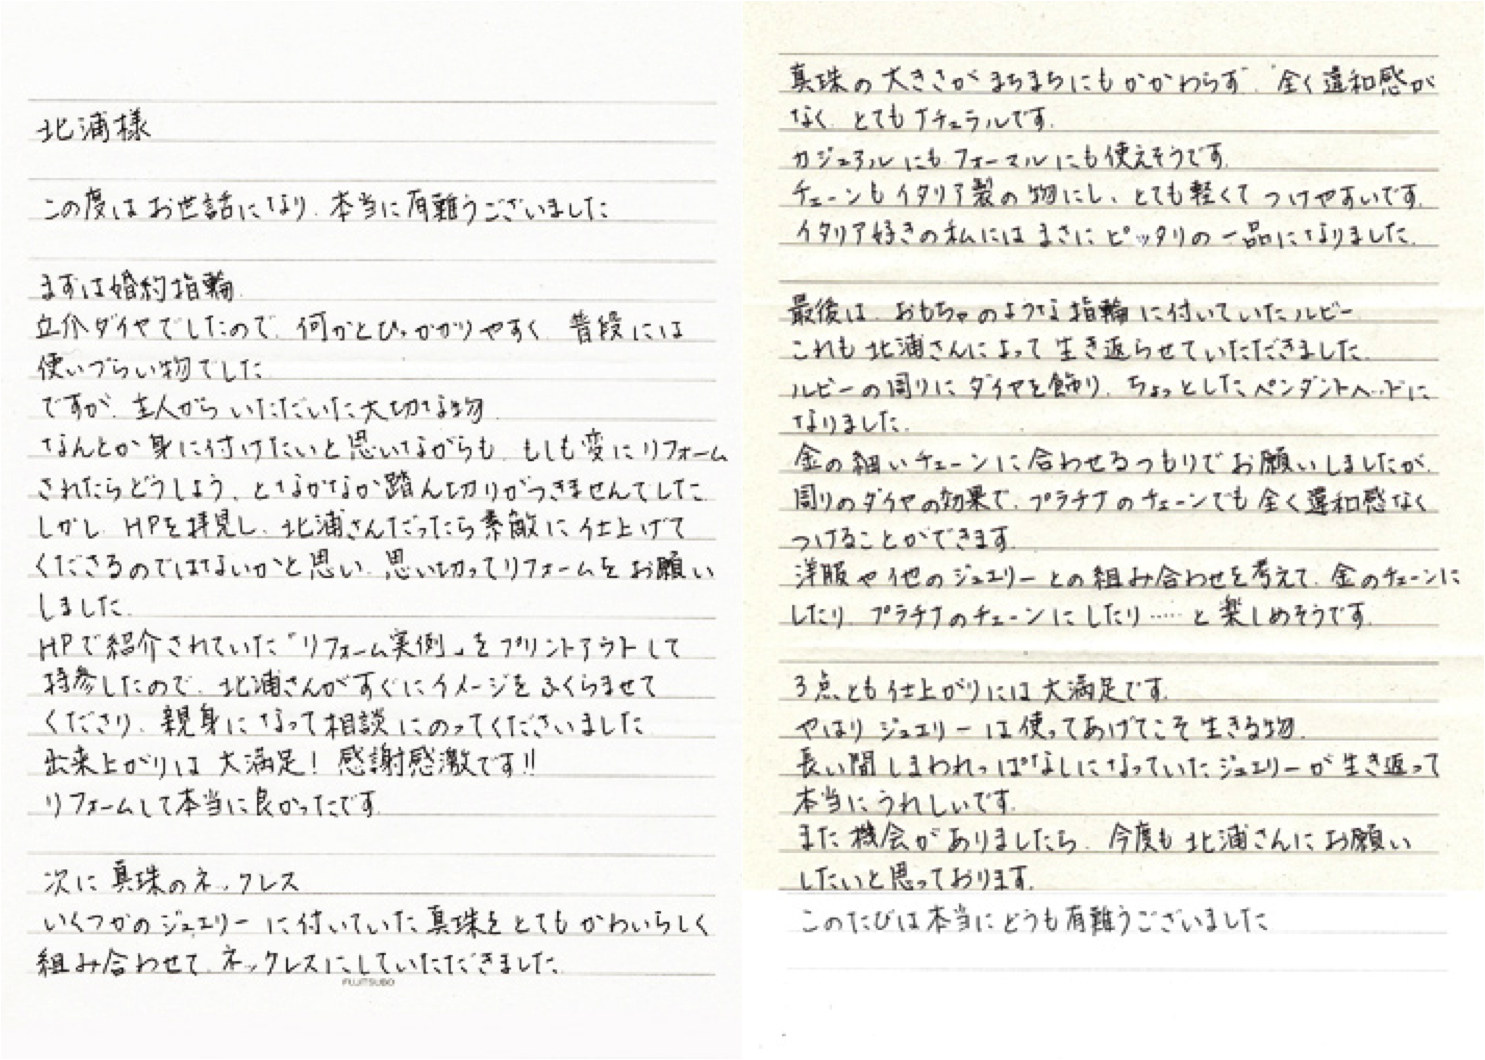 北浦様
この度はお世話になり、本当に有難うございました
まずは婚約指輪
立爪ダイヤでしたので、何かとひっかかりやすく、普段には
使いづらい物でした
ですが、主人からいただいた大切な物
なんとか身に付けたいと思いながらも、もしも変にリフォーム
されたらどうしよう、となかなか踏ん切りがつきませんでした
しかし、HPを拝見し、北浦さんだったら素敵に仕上げて
くださるのではないかと思い、思い切ってリフォームをお願い
しました.
HPで紹介されていた「リフォーム実例」をプリントアウトして
持参したので、北浦さんがすぐにイメージをふくらませて
くださり、親身になって相談にのってくださいました
出来上がりは大満足!感謝感激です!!
リフォームして本当に良かったです.
次に真珠のネックレス
いくつかのジュエリーに付いていた真珠をとてもかわいらしく
組み合わせて、ネックレスにしていただきました
FUJITSUBO
真珠の大きさがまちまちにもかかわらず、全く違和感が
なく、とてもナチュラルです.
カジュアルにもフォーマルにも使えそうです.
チェーンもイタリア製の物にし、とても軽くてつけやすいです.
イタリア好きの私にはまさにピッタリの一品になりました.
最後は、おもちゃのような指輪に付いていたルビー
これも北浦さんによって生き返らせていただきました.
ルビーの周りにダイヤを飾り、ちょっとしたペンダントヘッドに
なりました.
金の細いチェーンに合わせるつもりでお願いしましたが、
周りのダイヤの効果で、プラチナのチェーンでも全く違和感なく
つけることができます.
洋服や他のジュエリーとの組み合わせを考えて、金のチェーンに
したり、プラチナのチェーンにしたり……と楽しめそうです.
3点とも仕上がりには大満足です.
やはりジュエリーは使ってあげてこそ生きる物.
長い間しまわれっぱなしになっていたジュエリーが生き返って
本当にうれしいです.
また機会がありましたら、今度も北浦さんにお願い
したいと思っております.
このたびは本当にどうも有難うございました